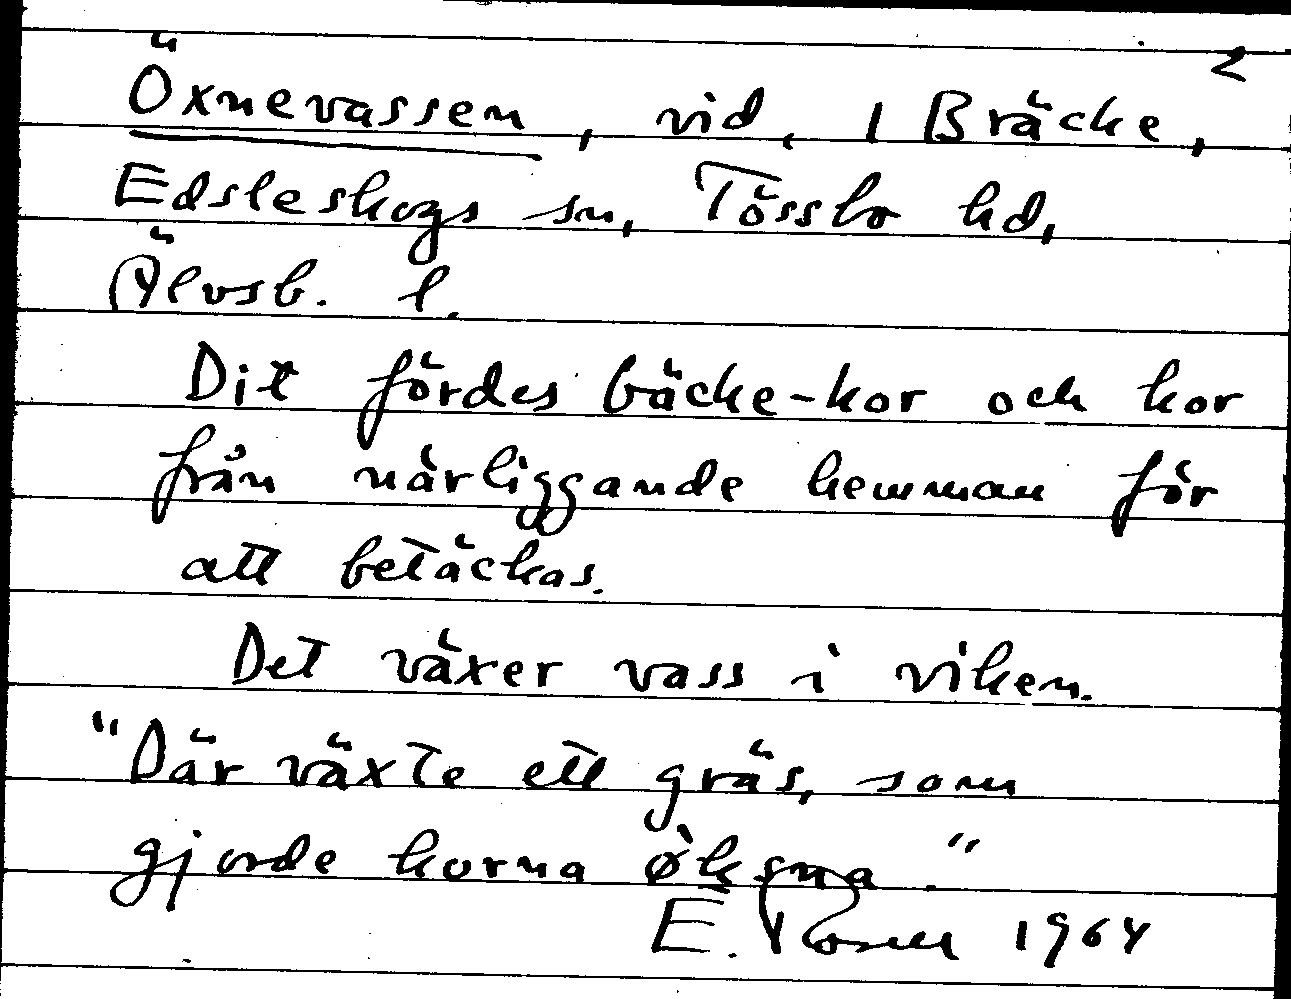 2
Öxnevassen, vid, 1 Bräcke,
Edsleskogs sn, Tössbo hd,
Älvsb. l.
Dit fördes bäcke-kor och kor
från närliggande hemman för
att betäckas.
Det växer vass i viken.
"Där växte ett gräs, som
gjorde korna øksna."
E. 1964